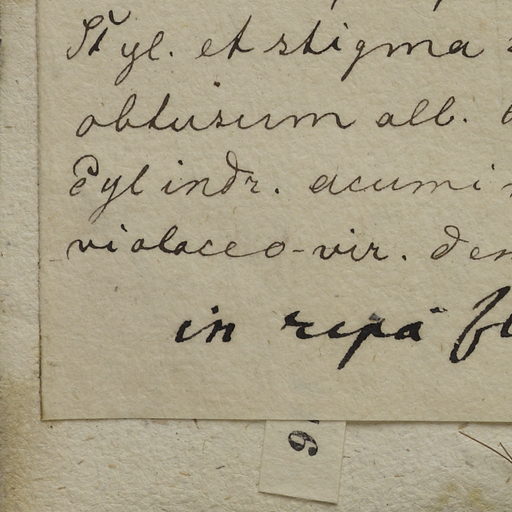 Styl. et stigma
obtusum alb.
Cylindr. acumi
violaceo-vir. den
in ripâ fl
6